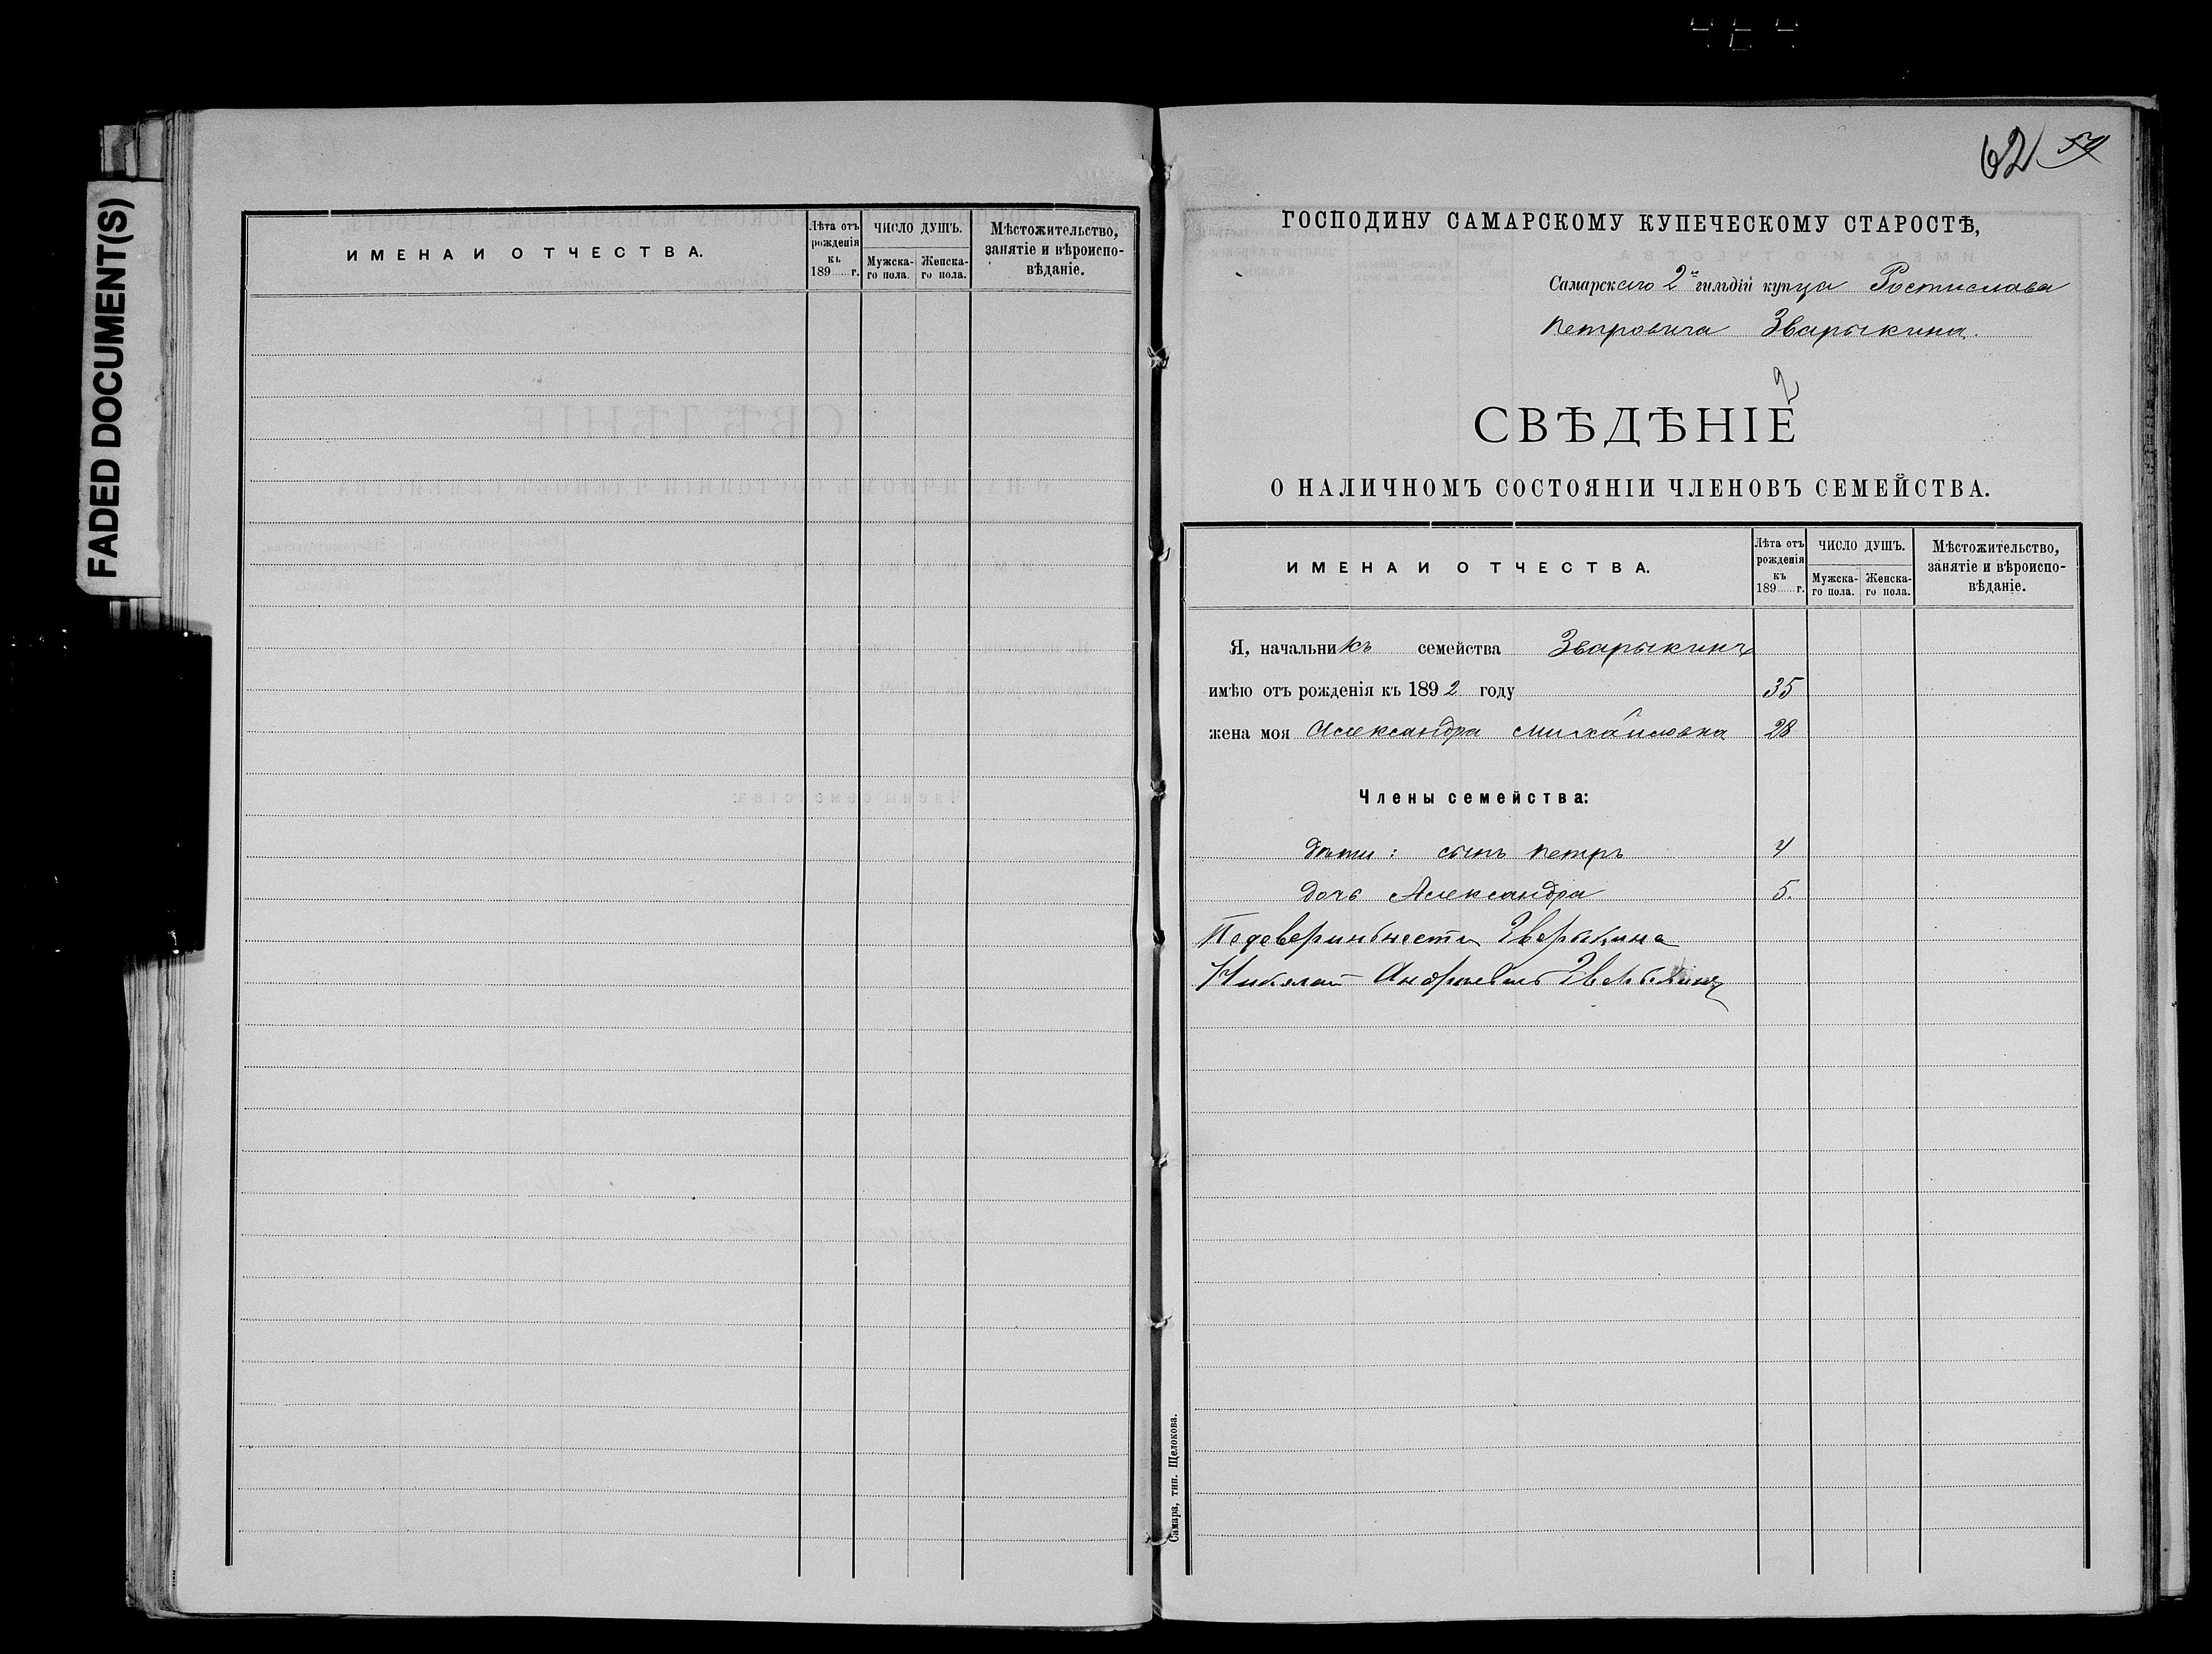 464
FADED DOCUMENT(S)
ИМЕНА И ОТЧЕСТВА.
Лѣта отъ рожденія къ 189 г.
ЧИСЛО ДУШЪ.
Мужска-го пола.
Женска-го пола.
Мѣстожительство, занятіе и вѣроиспо-вѣданіе.
62
ГОСПОДИНУ САМАРСКОМУ КУПЕЧЕСКОМУ СТАРОСТѢ,
Самарскаго 2й гильдіи купца Ростислава
Петровича Зварыкина.
2
СВѢДѢНІЕ
О НАЛИЧНОМЪ СОСТОЯНІИ ЧЛЕНОВЪ СЕМЕЙСТВА.
ИМЕНА И ОТЧЕСТВА.
Лѣта отъ рожденія къ 189 г.
ЧИСЛО ДУШЪ.
Мужска-го пола.
Женска-го пола.
Мѣстожительство, занятіе и вѣроиспо-вѣданіе.
Я, начальникъ семейства Зварыкинъ
имѣю отъ рожденія къ 1892 году 35
жена моя Александра Михайловна 28
Члены семейства:
дѣти: сынъ Петръ 4
дочь Александра 5.
Зварыкина
Николай Андреевичъ Зварыкинъ
Самара, тип. Щелокова.